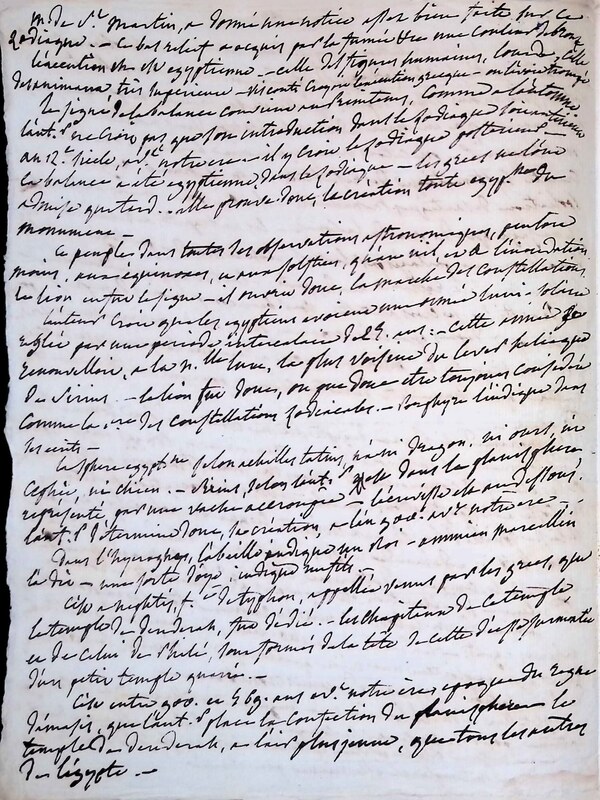 M. de St. Martin, a donné une notice assez bien faite sur ce
Zodiaque. - ce bas relief a acquis par la fumée une couleur de bronze
l'exécution en est egyptienne - celle des figures humaines, lourde, celle
des animaux, très supérieure - Visconti croyoit l'exécution grecque - on l'avoit trompé
le signe de la balance convient au printems, comme à l'automne
l'aut. ne croit pas que son introduction dans le zodiaque soit
au 12e siècle, av. notre ere - il y croit le zodiaque postérieur -
la balance a été egyptienne dans le zodiaque - les grecs ne l'ont
admise que tard. - elle prouve donc, la création toute egypt.nne du
monument -
ce peuple dans toutes les observations astronomiques,
moins, aux equinoxes, et aux solstices, qu'au nil, et à l'inondation
le lion entre le signe - il ouvroit donc, la marche des constellations
l'auteur croit que les egyptiens avoient une année luni-solaire
reglée par une periode intercalaire de 25 ans. - cette année se
renouvelloit, à la n.lle lune, la plus voisine du lever heliaque
de Sirius. - le lion fut donc, ou que donc etre toujours considéré
comme la 1re des constellations zodiacales. - Porphyre l'indique dans
ses ecrits -
la sphere egypt.ne selon achilles tatius, n'a ni dragon, ni ours, ni
Cephée, ni chien. - Sirius, selon l'aut. est dans le planisphere
représenté, par une vache accroupie - l'
l'aut. détermine donc, sa création, à l'an 900. av. notre ere -
Dans l'hyerogphes, l'abeille indique un Roi - ammien marcellin
l'a dit - une sorte d'oye, indique un fils -
C'est à nephtis, f. de typhon, appellée venus par les grecs, que
le temple de denderah, fut dédié. - les chapiteaux de ce temple,
et de celui de Philé, sont formés de la tête de cette déesse surmontée
d'un petit temple quarré. -
C'est entre 900. et 569. ans av. notre ère, epoque du regne
d'amasis, que l'aut. place la confection du planisphere - le
temple de denderah, a l'air plus jeune, que tous les autres
de l'égypte. -